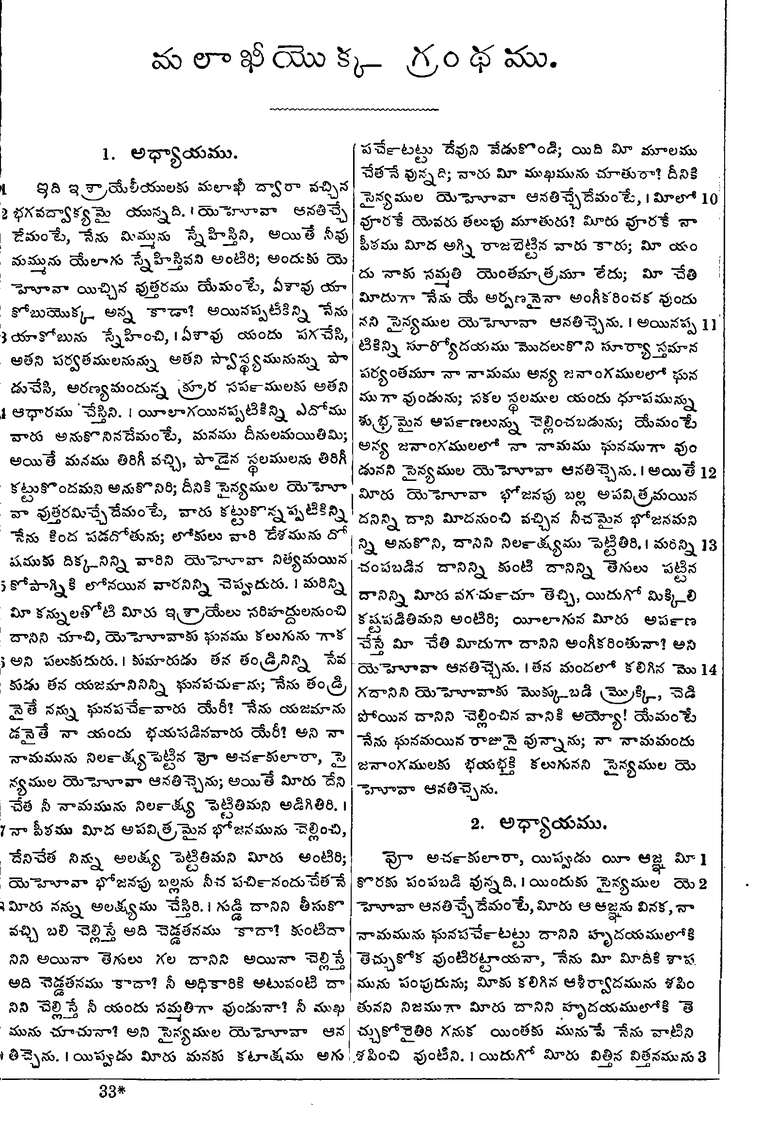 మలాఖీయొక్క గ్రంథము.
1. అధ్యాయము.
1 ఇది ఇశ్రాయేలీయులకు మలాఖీ ద్వారా వచ్చిన
2 భగవద్వాక్యమై యున్నది. । యెహోవా ఆనతిచ్చే
దేమంటే, నేను మిమ్మును స్నేహిస్తిని, అయితే నీవు
మమ్మును యేలాగు స్నేహిస్తివని అంటిరి; అందుకు యె
హోవా యిచ్చిన వుత్తరము యేమంటే, ఏశావు యా
కోబుయొక్క అన్న కాడా? అయినప్పటికిన్ని నేను
3 యాకోబును స్నేహించి, । ఏశావు యందు పగచేసి,
అతని పర్వతములనున్ను అతని స్వాస్థ్యమునున్ను పా
డుచేసి, అరణ్యమందున్న క్రూర సర్పములకు అతని
4 ఆధారము చేస్తిని. । యీలాగయినప్పటికిన్ని ఎదోము
వారు అనుకొనినదేమంటే, మనము దీనులమయితిమి;
అయితే మనము తిరిగీ వచ్చి, పాడైన స్థలములను తిరిగీ
కట్టుకొందమని అనుకొనిరి; దీనికి సైన్యముల యెహో
వా వుత్తరమిచ్చేదేమంటే, వారు కట్టుకొన్నప్పటికిన్ని
నేను కింద పడదోతును; లోకులు వారి దేశమును దో
షముకు దిక్కనిన్ని వారిని యెహోవా నిత్యమయిన
5 కోపాగ్నికి లోనయిన వారనిన్ని చెప్పుదురు. । మరిన్ని
మీ కన్నులతోటి మీరు ఇశ్రాయేలు సరిహద్దులనుంచి
దానిని చూచి, యెహోవాకు ఘనము కలుగును గాక
6 అని పలుకుదురు. । కుమారుడు తన తండ్రినిన్ని సేవ
కుడు తన యజమానినిన్ని ఘనపర్చును; నేను తండ్రి
నైతే నన్ను ఘనపర్చేవారు యేరీ? నేను యజమాను
డనైతే నా యందు భయపడినవారు యేరీ? అని నా
నామమును నిర్లక్ష్యపెట్టిన వోా అర్చకులారా, సై
న్యముల యెహోవా ఆనతిచ్చెను; అయితే మీరు దేని
చేత నీ నామమును నిర్లక్ష్య పెట్టితిమని అడిగితిరి. ।
7 నా పీఠము మీద అపవిత్రమైన భోజనమును చెల్లించి,
దేనిచేత నిన్ను అలక్ష్య పెట్టితిమని మీరు అంటిరి;
యెహోవా భోజనపు బల్లను నీచ పర్చినందుచేతనే
8 మీరు నన్ను అలక్ష్యము చేస్తిరి. । గుడ్డి దానిని తీసుకొ
వచ్చి బలి చెల్లిస్తే అది చెడ్డతనము కాదా? కుంటిదా
నిని అయినా తెగులు గల దానిని అయినా చెల్లిస్తే
అది చెడ్డతనము కాదా? నీ అధికారికి అటువంటి దా
నిని చెల్లిస్తే నీ యందు సమ్మతిగా వుండునా? నీ ముఖ
మును చూచునా? అని సైన్యముల యెహోవా ఆన
9 తిచ్చెను. । యిప్పుడు మీరు మనకు కటాక్షము అగు
పర్చేటట్టు దేవుని వేడుకొండి; యిది మీ మూలము
చేతనే వున్నది; వారు మీ ముఖమును చూతురా? దీనికి
సైన్యముల యెహోవా ఆనతిచ్చేదేమంటే, । మీలో 10
వూరకే యెవరు తలుపు మూతురు? మీరు వూరకే నా
పీఠము మీద అగ్ని రాజబెట్టిన వారు కారు; మీ యం
దు నాకు సమ్మతి యెంతమాత్రమూ లేదు; మీ చేతి
మీదుగా నేను యే అర్పణనైనా అంగీకరించక వుందు
నని సైన్యముల యెహోవా ఆనతిచ్చెను. । అయినప్ప 11
టికిన్ని సూర్యోదయము మొదలుకొని సూర్యాస్తమాన
పర్యంతమూ నా నామము అన్య జనాంగములలో ఘన
ముగా వుండును; సకల స్థలముల యందు ధూపమున్ను
శుభ్రమైన అర్పణలున్ను చెల్లించబడును; యేమంటే
అన్య జనాంగములలో నా నామము ఘనముగా వుం
డునని సైన్యముల యెహోవా ఆనతిచ్చెను. । అయితే 12
మీరు యెహోవా భోజనపు బల్ల అపవిత్రమయిన
దనిన్ని దాని మీదనుంచి వచ్చిన నీచమైన భోజనమని
న్ని అనుకొని, దానిని నిర్లక్ష్యము పెట్టితిరి. । మరిన్ని 13
చంపబడిన దానిన్ని కుంటి దానిన్ని తెగులు పట్టిన
దానిన్ని మీరు పగర్చుచూ తెచ్చి, యిదుగో మిక్కిలి
కష్టపడితిమని అంటిరి; యీలాగున మీరు అర్పణ
చేస్తే మీ చేతి మీదుగా దానిని అంగీకరింతునా? అని
యెహోవా ఆనతిచ్చెను. । తన మందలో కలిగిన మొ 14
గదానిని యెహోవాకు మొక్కుబడి మ్రొక్కి, చెడి
పోయిన దానిని చెల్లించిన వానికి అయ్యో! యేమంటే
నేను ఘనమయిన రాజునై వున్నాను; నా నామమందు
జనాంగములకు భయభక్తి కలుగునని సైన్యముల యె
హోవా ఆనతిచ్చెను.
2. అధ్యాయము.
వోా అర్చకులారా, యిప్పుడు యీ ఆజ్ఞ మీ 1
కొరకు పంపబడి వున్నది. । యిందుకు సైన్యముల యె 2
హోవా ఆనతిచ్చేదేమంటే, మీరు ఆ ఆజ్ఞను వినక, నా
నామమును ఘనపర్చేటట్టు దానిని హృదయములోకి
తెచ్చుకోక వుంటిరట్టాయనా, నేను మీ మీదికి శాప
మును పంపుదును; మీకు కలిగిన ఆశీర్వాదమును శపిం
తునని నిజముగా మీరు దానిని హృదయములోకి తె
చ్చుకోరైతిరి గనుక యింతకు మునుపే నేను వాటిని
శపించి వుంటిని. । యిదుగో మీరు విత్తిన విత్తనమును 3
33*